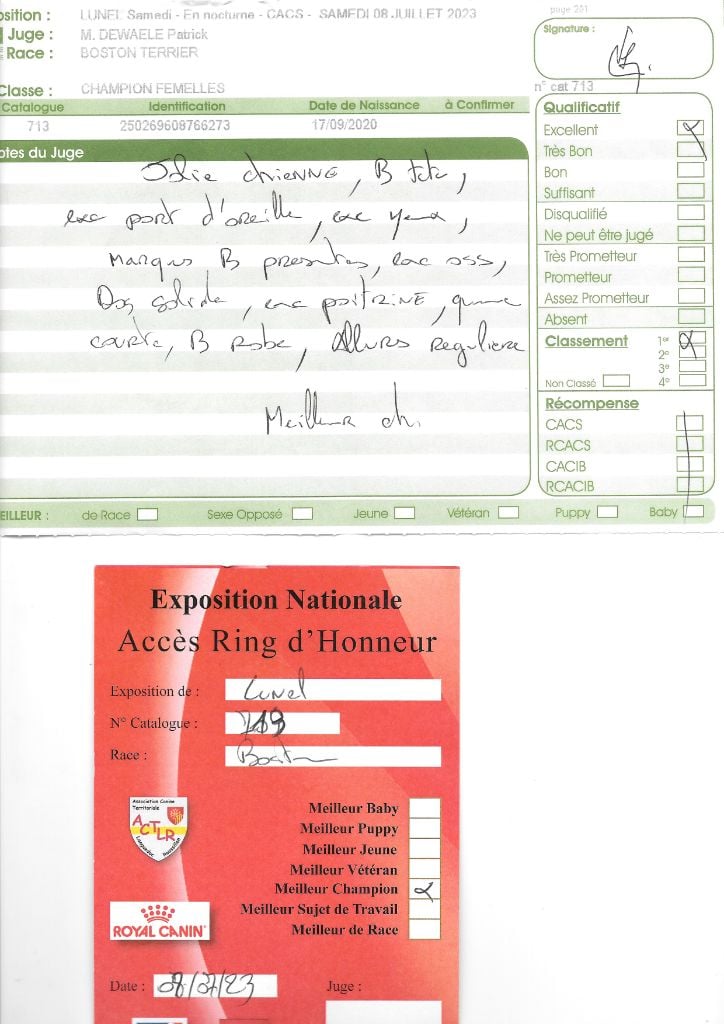 position : LUNEL Samedi - En nocturne - CACS - SAMEDI 08 JUILLET 2023
page 201
Juge : M. DEWAELE Patrick
Race : BOSTON TERRIER
Signature :
Classe : CHAMPION FEMELLES
n° cat 713
Catalogue Identification Date de Naissance à Confirmer
713 250269608766273 17/09/2020
otes du Juge
Jolie chienne, B tete,
exc port d'oreille, exc yeux,
Marques B presentes, exc oss,
Dos solide, exc poitrine, queue
courte, B robe, Allures reguliere
Meilleur ch.
Qualificatif
Excellent
Très Bon
Bon
Suffisant
Disqualifié
Ne peut être jugé
Très Prometteur
Prometteur
Assez Prometteur
Absent
Classement 1er
2e
3e
Non Classé 4e
Récompense
CACS
RCACS
CACIB
RCACIB
EILLEUR : de Race Sexe Opposé Jeune Vétéran Puppy Baby
Exposition Nationale
Accès Ring d'Honneur
Exposition de : Lunel
N° Catalogue :
Race : Boston
Association Canine
Territoriale
ACTLR
Languedoc Roussillon
Meilleur Baby
Meilleur Puppy
Meilleur Jeune
Meilleur Vétéran
Meilleur Champion
Meilleur Sujet de Travail
Meilleur de Race
ROYAL CANIN
Date : 08/07/23 Juge :